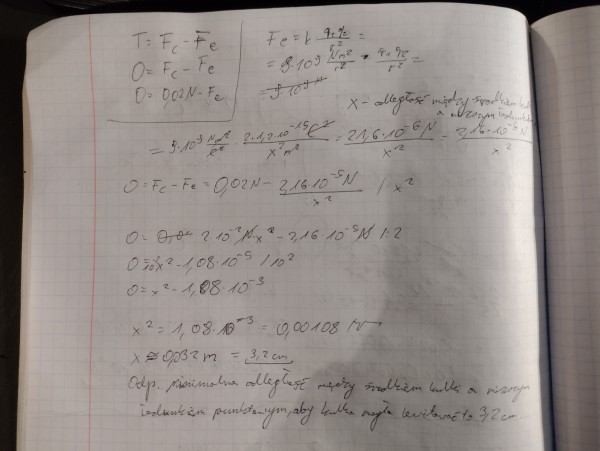 T = Fc - Fe
0 = Fc - Fe
0 = 0,02N - Fe
Fe = k q₁q₂/r² =
= 9·10⁹ Nm²/c² · q₁·q₂/r² =
= 9·10⁹
x - odległość między środkiem kulki
a niższym ładunkiem
= 9·10⁹ Nm²/c² · 2·1,2·10⁻¹⁵ C²/x²m² = 21,6·10⁻⁶N/x² = 2,16·10⁻⁵N/x²
0 = Fc - Fe = 0,02N - 2,16·10⁻⁵N/x² / x²
0 = 2·10⁻²N x² - 2,16·10⁻⁵N /:2
0 = 1/10² x² - 1,08·10⁻⁵ / 10²
0 = x² - 1,08·10⁻³
x² = 1,08·10⁻³ = 0,00108
x ≈ 0,032 m = 3,2 cm
Odp. odległość między środkiem kulki a niższym
ładunkiem punktowym, aby kulka mogła lewitować to 3,2 cm.